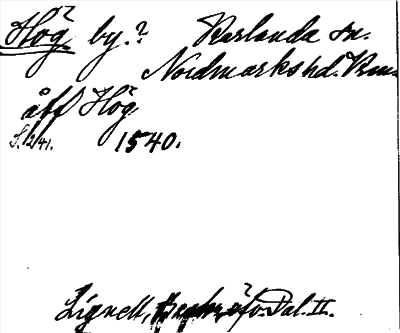 Hög? by.? Karlanda sn.
Nordmarks hd. Vrml.
åff Hög
S. 12/41. 1540.
Lignell, Beskr. öfv. Dal. II.